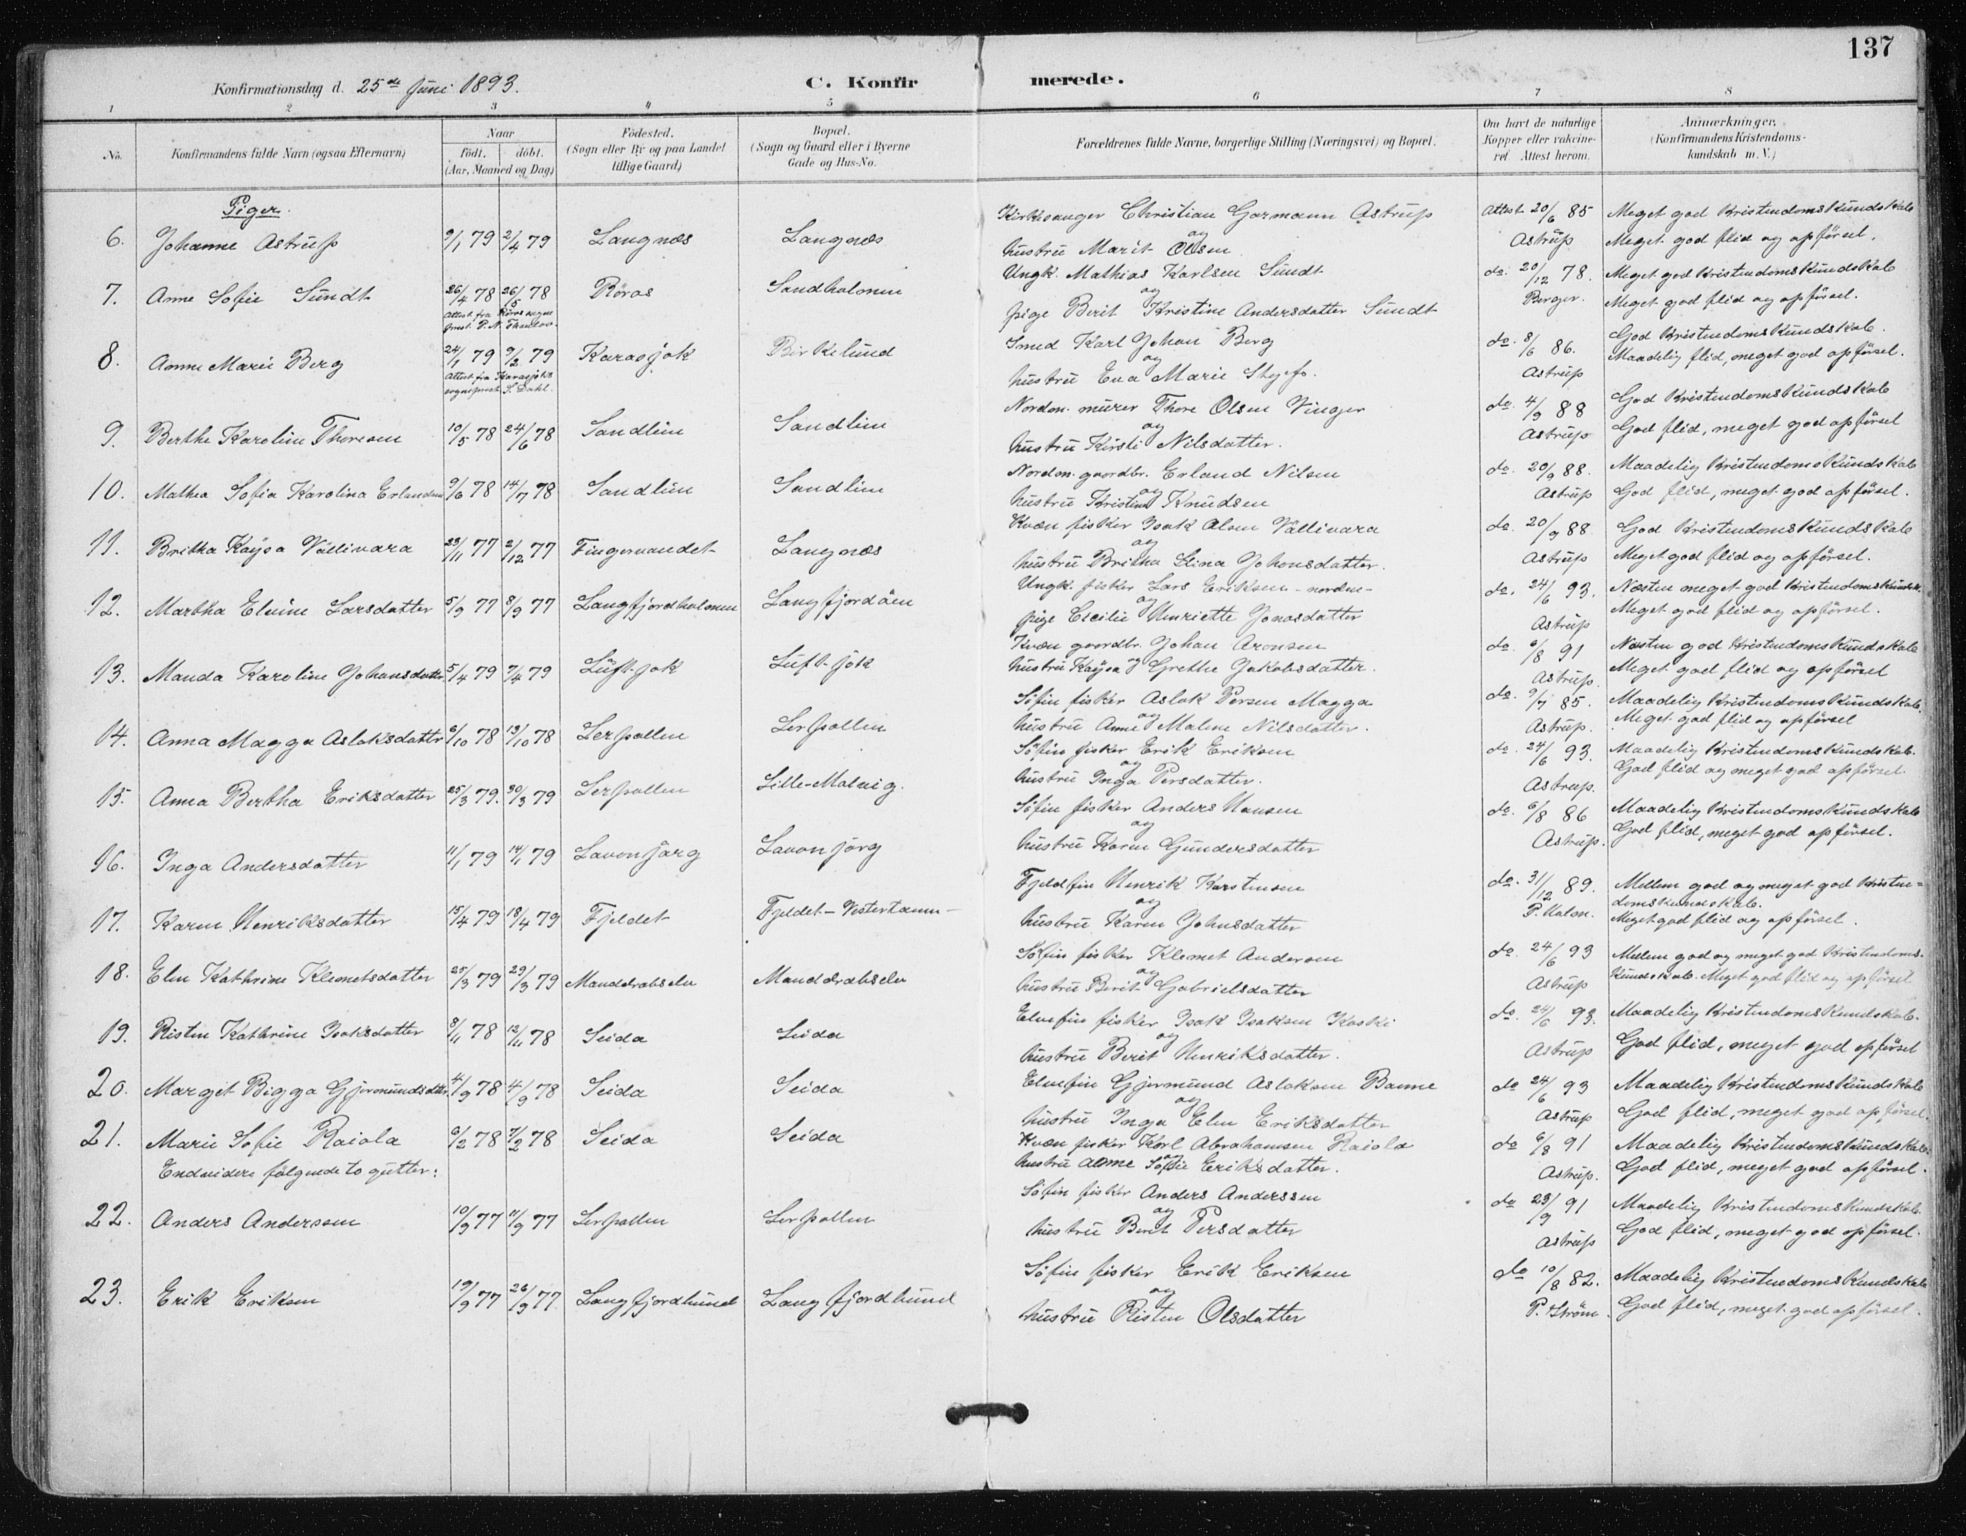 137
Konfirmationsdag d. 25de Juni 1893. C. Konfir merede.
1 2 3 4 5 6 7 8
No.
Konfirmandens fulde Navn (ogsaa Efternavn)
Naar
födt. döbt.
(Aar, Maaned og Dag)
Födested.
(Sogn eller By og paa Landet
tillige Gaard)
Bopæl.
(Sogn og Gaard eller i Byerne
Gade og Hus-No.
Forældrenes fulde Navne, borgerlige Stilling (Næringsvei) og Bopæl.
Om havt de naturlige
Kopper eller vakcine-
ret. Attest herom.
Anmærkninger.
(Konfirmandens Kristendoms-
kundskab m. V.)
Piger.
6. Johanne Astrup 9/1 79 2/4 79 Langnæs Langnæs
Kirkesanger Christian Gormann Astrup
og
hustru Marit Olsen
Attest 20/6 85
Astrup
Meget god Kristendomskundskab
Meget god flid og opförsel.
7. Anne Sofie Sundt 26/4 78 26/5 78 Röros Sandholmen
Attest fra Röros sogne
prest P. N.
Ungk. Mathias Karlsen Sundt
og
pige Berit Kristine Andersdatter Sundt
do. 20/12 78.
Berger.
Meget god Kristendomskundskab
Meget god flid og opförsel.
8. Anne Marie Berg 24/1 79 9/2 79 Karasjok Birkelund
Attest fra Karasjoks
sogneprest S. Dahl.
Smed Karl Johan Berg
og
hustru Eva Marie
do. 8/6 86.
Astrup
God Kristendomskundskab.
Maadelig flid, meget god opförsel.
9. Berthe Karoline Thoresen 10/5 78 24/6 78 Sandlien Sandlien
Nordm. murer Thore Olsen Vinger
og
hustru Kirsti Nilsdatter.
do. 4/9 88
Astrup
God Kristendomskundskab
God flid, meget god opförsel
10. Mathea Sofia Karolina Erlandsen 9/6 78 14/7 78 Sandlien Sandlien
Nordm. gaardbr. Erland Nilsen
og
hustru Kristine Knudsen
do. 20/9 88.
Astrup
Maadelig Kristendomskundskab
God flid, meget god opförsel.
11. Britha Kaysa Vällivara 23/11 77 2/12 77 Fingervandet Langnæs
Kvæn fisker Isak Olsen Vällivara
og
hustru Britha Stina Johansdatter.
do. 20/9 88
Astrup
God Kristendomskundskab
Meget god flid og opförsel.
12. Martha Elvine Larsdatter 5/9 77 8/9 77 Langfjordholmen Langfjordöen
Ungk. fisker Lars Eriksen - nordm-
og
pige Cecilie Henriette Jonasdatter
do. 24/6 93.
Astrup
Næsten meget god Kristendomskundsk.
Meget god flid og opförsel.
13. Manda Karoline Johansdatter 5/4 79 7/4 79 Luftjok Luftjok
Kvæn gaardbr. Johan Aronsen
og
hustru Kaysa Grethe Jakobsdatter.
do. 6/8 91
Astrup.
Næsten god Kristendomskundskab
Meget god flid og opförsel
14. Anna Magga Aslaksdatter 6/10 78 13/10 78 Lerpollen Lerpollen
Söfin fisker Aslak Persen Magga
og
hustru Anne Malene Nilsdatter.
do. 9/7 85.
Astrup.
Maadelig Kristendomskundskab.
Meget god flid og opförsel
15. Anna Bertha Eriksdatter 25/3 79. 30/3 79 Lerpollen Lille-Molvig.
Söfin fisker Erik Eriksen
og
hustru Inga Persdatter.
do. 24/6 93.
Astrup.
Maadelig Kristendomskundskab.
God flid og meget god opförsel.
16. Inga Andersdatter 11/1 79 14/1 79 Lavonjarg Lavonjarg
Söfin fisker Anders Hansen
og
hustru Karen Gundersdatter
do. 6/8 86
Astrup.
Maadelig Kristendomskundskab
God flid, meget god opförsel.
17. Karen Henriksdatter 15/4 79 18/4 79 Fjeldet Fjeldet-Vestertanen-
Fjeldfin Henrik Karstensen
og
hustru Karen Johnsdatter
do. 31/12 89.
P. Holm.
Mellem god og meget god Kristen=
domskundskab.
Meget god flid og opförsel.
18. Elen Kathrine Klemetsdatter 25/3 79 29/3 79 Manddrabselv Manddrabselv
Söfin fisker Klemet Andersen
og
hustru Berit Gabrielsdatter
do. 24/6 93
Astrup
Mellem god og meget god Kristendoms-
kundskab. Meget god flid og opförsel
19. Risten Kathrine Isaksdatter 8/11 78 12/11 78 Seida Seida
Elvefin fisker Isak Isaksen Koski
og
hustru Berit Henriksdatter.
do. 24/6 93.
Astrup
Maadelig Kristendomskundskab.
God flid, meget god opförsel
20. Margit Bigga Gjermundsdatter 4/9 78 4/9 78 Seida Seida
Elvefin Gjermund Aslaksen Banne
og
hustru Inga Elen Eriksdatter
do 24/6 93
Astrup
Maadelig Kristendomskundskab
God flid, meget god opförsel.
21. Marie Sofie Raiola 6/2 78 7/2 78 Seida Seida
Kvæn fisker Karl Abrahamsen Raiola
og
hustru Anne Sofie Eriksdatter.
do 6/8 91
Astrup.
Maadelig Kristendomskundskab.
God flid, meget god opförsel.
Endvidere fölgende to gutter:
22. Anders Anderssen 10/9 77 11/9 77 Lerpollen Lerpollen
Söfin fisker Anders Anderssen
og
hustru Berit Persdatter
do 23/9 91
Astrup
Maadelig Kristendomskundskab
God flid, meget god opförsel.
23. Erik Eriksen 19/9 77 26/9 77. Langfjordbund Langfjordbund
Söfin fisker Erik Eriksen
og
hustru Risten Olsdatter
do 10/8 82.
P. Ström.
Maadelig Kristendomskundskab
God flid, meget god opförsel.